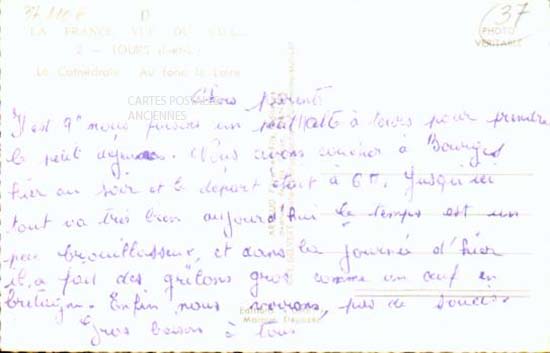 37 1106 D 37
LA FRANCE VUE DU CIEL
2 - TOURS
PHOTO
VERITABLE
La Cathédrale Au fond la Loire
CARTES POSTALES
ANCIENNES
Chers parents
Il est 9h nous faisons un petit halte à tours pour prendre
le petit déjeuner. Nous avons coucher à Bourges
hier au soir et le départ était à 6h. Jusqu'ici
tout va très bien aujourd'hui le temps est un
peu brouillasseux, et dans la journée d'hier
il a fait des grêlons gros comme un œuf en
bretagne. Enfin nous verrons, pas de soucis.
Gros baisers à tous